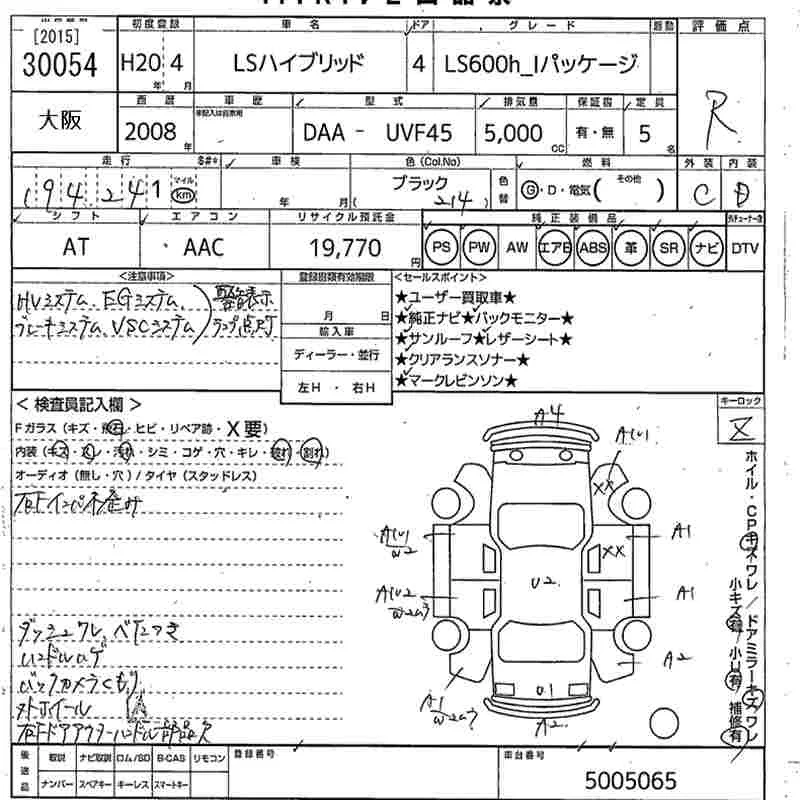 [2015]
30054
初度登録 車名 ドア グレード
H20 4 LSハイブリッド 4 LS600h_Iパッケージ
年 月
評価点
R
大阪
西暦 車歴 型式 排気量 保証書 定員
2008 年 DAA - UVF45 5,000 CC 有・無 5 名
走行 車検 色(Col.No) 燃料 外装 内装
194,241 マイル km 年 月 ブラック (214) 色替 G・D・電気( その他 ) C D
シフト エアコン リサイクル預託金 純正装備品
AT AAC 19,770 円 PS PW AW エアB ABS 革 SR ナビ DTV
<注意事項> <セールスポイント>
HVシステム、EGシステム 警告表示
ブレーキシステム、VSCシステム ランプ点灯
月 日
輸入車
ディーラー・並行
左H ・ 右H
★ユーザー買取車★
★純正ナビ★バックモニター★
★サンルーフ★レザーシート★
★クリアランスソナー★
★マークレビンソン★
<検査員記入欄>
キーロック
Fガラス(キズ・飛石・ヒビ・リペア跡・X要)
内装(キズ・スレ・汚れ・シミ・コゲ・穴・キレ・破れ・割れ)
オーディオ(無し・穴)/タイヤ(スタッドレス)
ダッシュワレ、ベタつき
ハンドルハゲ
バックカメラくもり
外Jイール
右Fドアアウターハンドル部品欠
A4
A(U)
XX
A1
XX
A(U)
W2
U2
A(U2
A1
A2
A1
U1
A2
ホイル・CPキズワレ/ドアミラーキズワレ
小キズ有 小U有 補修有
後送品 取説 ナビ取説 ロム/SD B-CAS リモコン
ナンバー スペアキー キーレス スマートキー
登録番号 車台番号
5005065